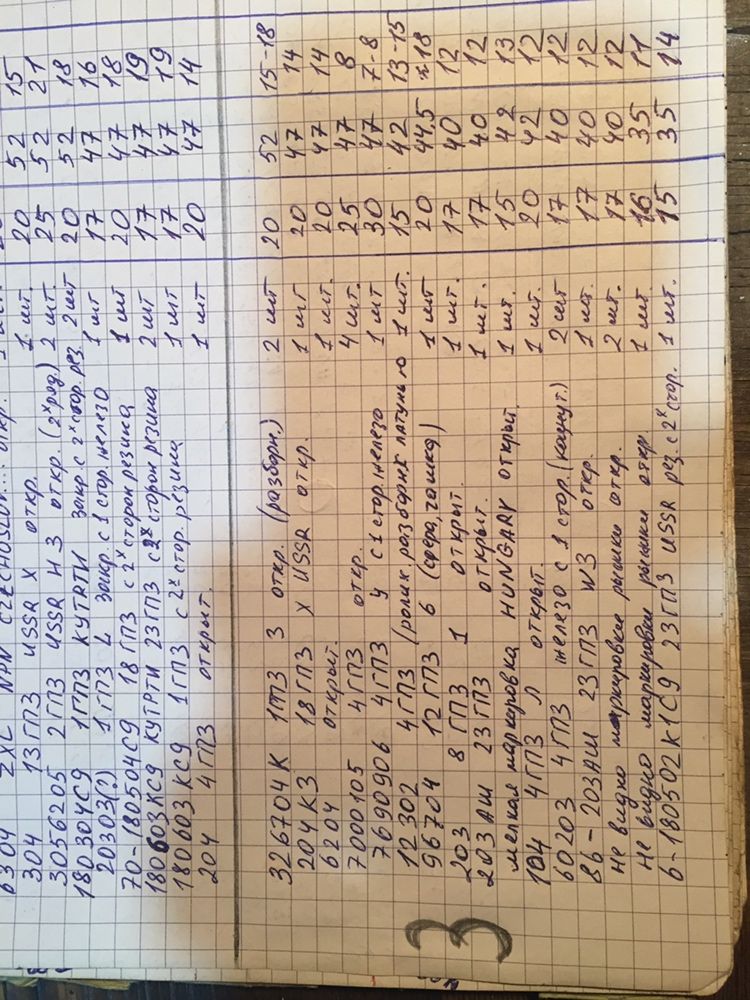 6304 ZXL NPN CZECHOSLOV... откр. 20 52 15
304 13 ГПЗ USSR X откр. 1 шт. 20 52 15
3056205 2 ГПЗ USSR Н 3 откр. (2ˣ ряд) 2 шт 25 52 21
180304С9 1ГПЗ КУТРТИ закр. с 2ˣ стор. рез. 2 шт 20 52 18
20303(?) 1 ГПЗ L закр. с 1 стор. железо 1 шт 17 47 16
70-180504С9 18 ГПЗ с 2ˣ сторон резина 1 шт 20 47 18
180603КС9 КУТРТИ 23ГПЗ с 2ˣ сторон резина 2 шт 17 47 19
180603КС9 1ГПЗ с 2ˣ стор. резина 1 шт 17 47 19
204 4 ГПЗ открыт. 1 шт 20 47 14
326704К 1ГПЗ 3 откр. (разборн.) 2 шт 20 52 15-18
204 К3 18 ГПЗ X USSR откр. 1 шт 20 47 14
6204 открыт. 1 шт. 20 47 14
7000105 4 ГПЗ откр. 4 шт 25 47 8
7690906 4 ГПЗ У с 1 стор. железо 1 шт 30 47 7-8
12302 4 ГПЗ (ролик. разборн. латунь ю 1 шт. 15 42 13-15
96704 12 ГПЗ 6 (сфера, чашка) 1 шт 20 44,5 ≈18
203 8 ГПЗ 1 открыт. 1 шт. 17 40 12
203АШ 23 ГПЗ открыт. 1 шт. 17 40 12
мелкая маркировка HUNGARY открыт. 1 шт 15 42 13
104 4 ГПЗ Л открыт. 1 шт. 20 42 12
60203 4 ГПЗ железо с 1 стор. 2 шт 17 40 12
86-203АШ 23 ГПЗ W3 откр. 1 шт. 17 40 12
не видно маркировки рыжики откр. 2 шт. 17 40 12
не видно маркировки рыжики откр 1 шт 16 35 11
6-180502К1С9 23ГПЗ USSR рез. с 2ˣ стор. 1 шт. 15 35 14
3